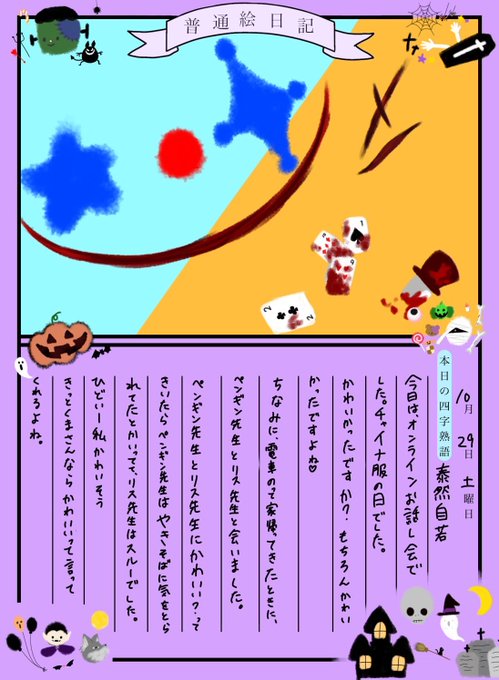 普通絵日記
10月29日土曜日
本日の四字熟語 泰然自若
今日は、オンラインお話し会で
した。チャイナ服の日でした。
かわいかったですか?もちろんかわい
かったですよね♡
ちなみに、電車のって家帰ってきたときに、
ペンギン先生とリス先生と会いました。
ペンギン先生とリス先生にかわいい?って
きいたらペンギン先生はやきそばに気をとら
れてたとかいってて、リス先生はスルーでした。
ひどいー私かわいそう
きっとくまさんならかわいいって言って
くれるよね。